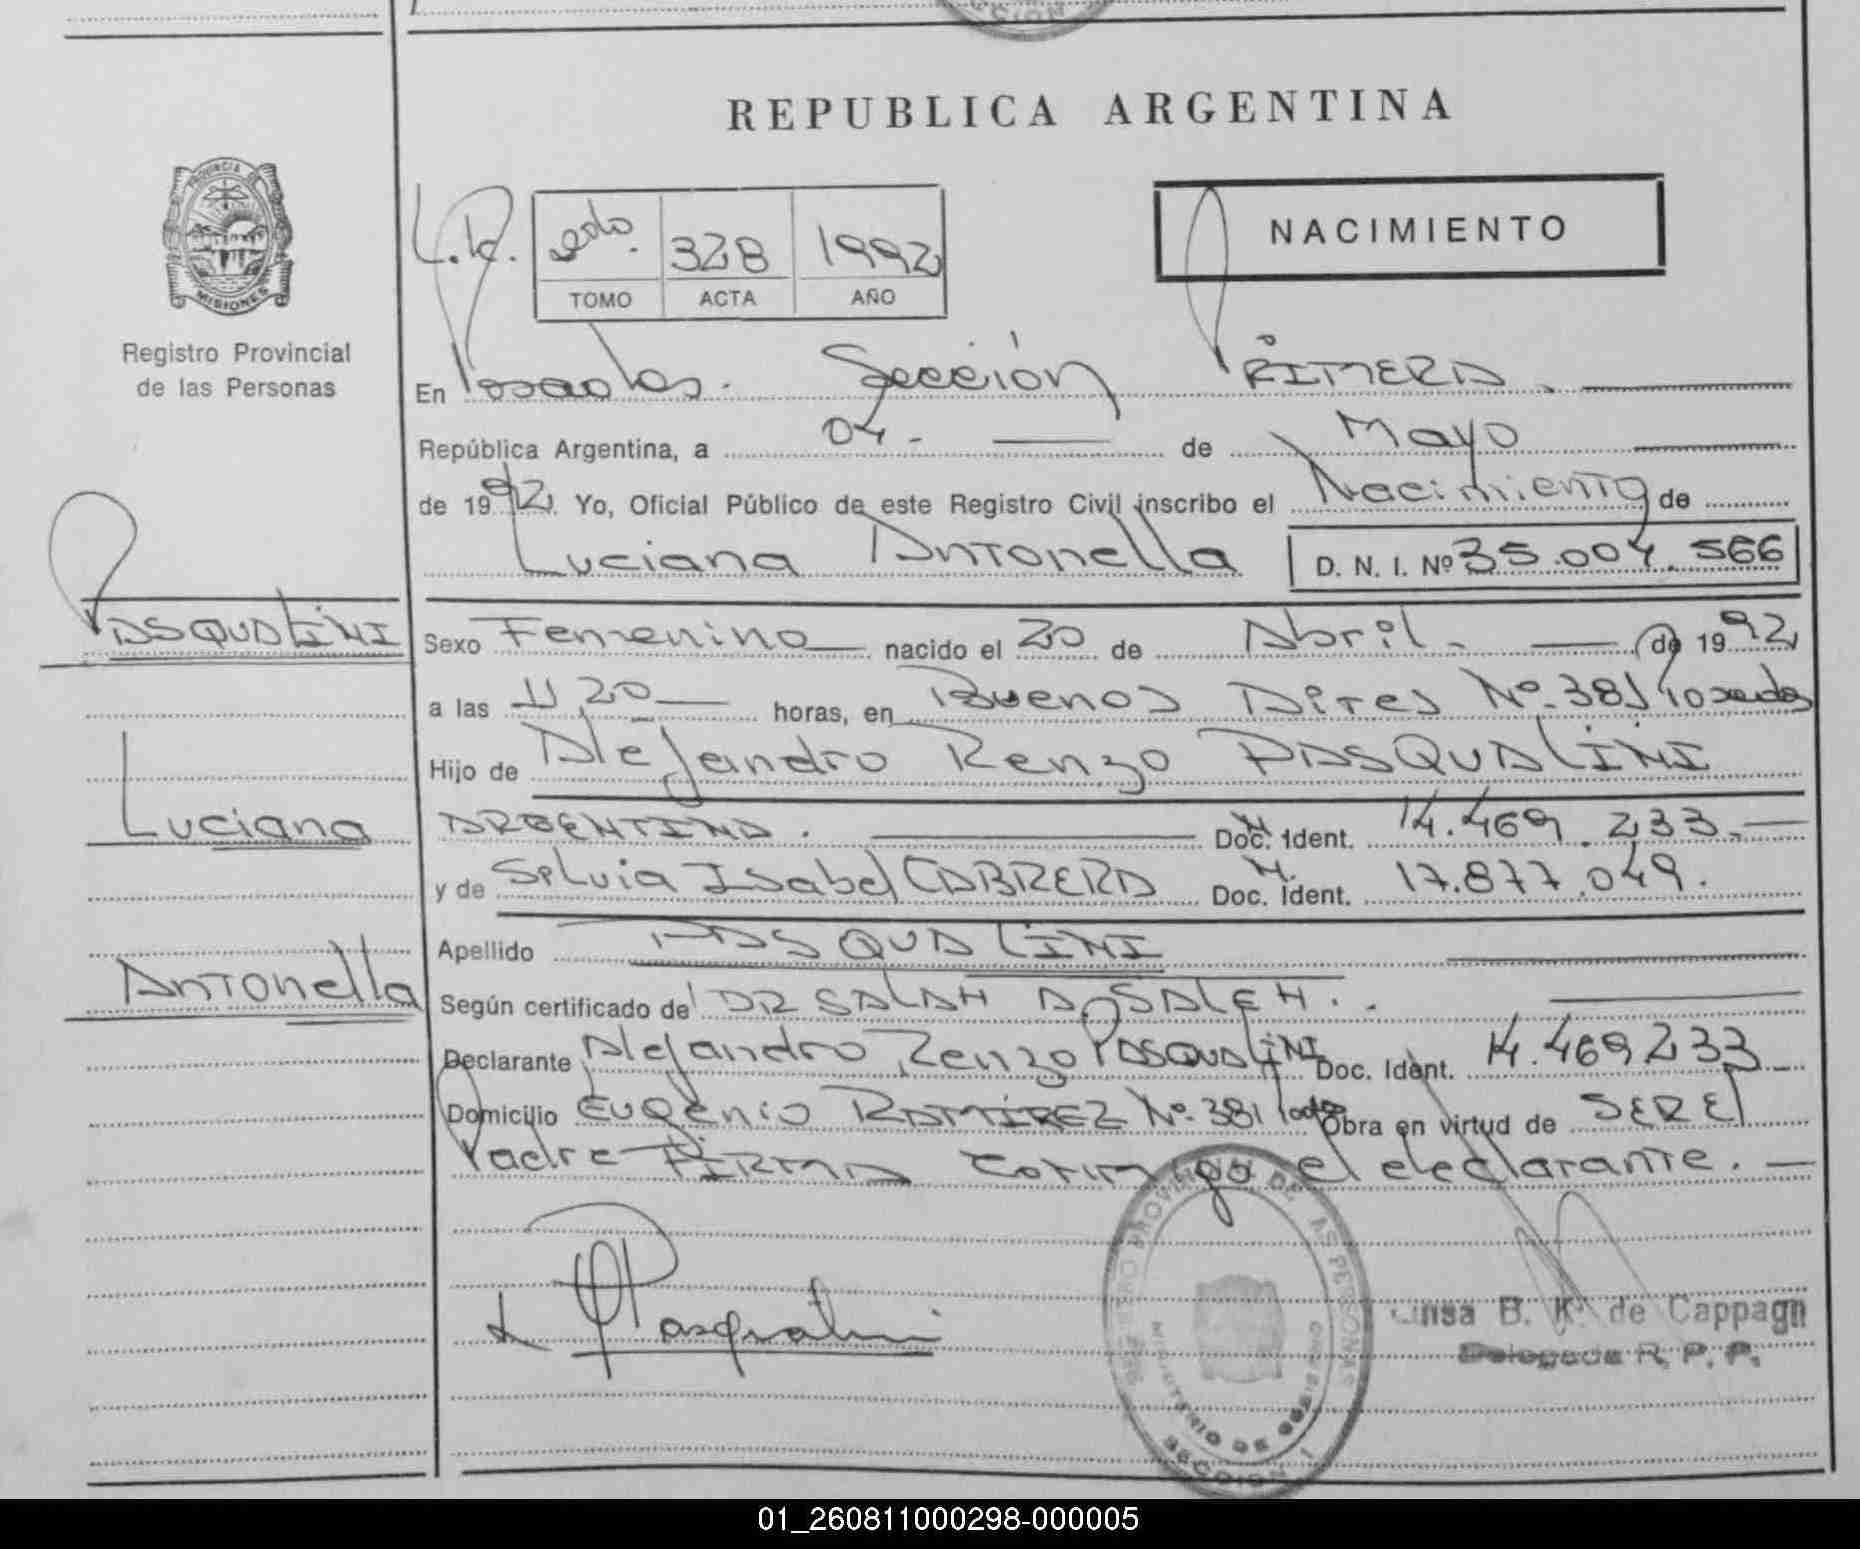 CCION
REPUBLICA ARGENTINA
PROVINCIA DE
MISIONES
NACIMIENTO
328 1992
TOMO ACTA AÑO
Registro Provincial
de las Personas
En Posadas. Sección PRIMERA.
República Argentina, a 04.- de Mayo
de 1992 Yo, Oficial Público de este Registro Civil inscribo el Nacimiento de
Luciana Antonella D. N. I. Nº 35.004.566
PASQUALINI
Sexo Femenino nacido el 20 de Abril.- de 1992
a las 11,20 horas, en Buenos Aires Nº.381 Posadas
Hijo de Alejandro Renzo PASQUALINI
Luciana
ARGENTINA. Doc. Ident. 14.469.233.-
y de Silvia Isabel CABRERA Doc. Ident. 17.877.049.
Apellido PASQUALINI
Antonella
Según certificado de DR SALAH A. SALEH.
Declarante Alejandro Renzo PASQUALINI Doc. Ident. 14.469.233
Domicilio Eugenio RAMIREZ Nº.381 Obra en virtud de SER El
Padre FIRMA conmigo el declarante.-
Pasqualini
REGISTRO PROVINCIAL DE LAS PERSONAS
MINISTERIO DE GOBIERNO
SECCION 1
B. K. de Cappagli
Delegada R. P. P.
01_260811000298-000005